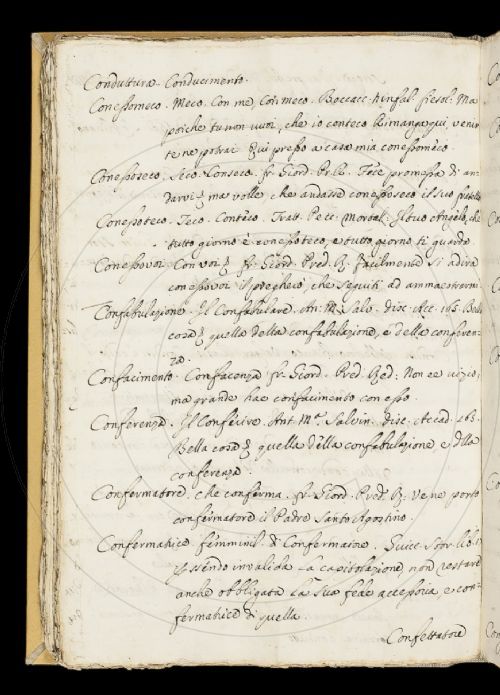 Conduttura. Conducimento.
Conessomeco. Meco. Con me, Con meco. Boccacc. Ninfal. fiesol: Ma
poiche tu non vuoi, che io conteco rimanga qui, venir
te ne potrai qui presso a casa mia conessomeco.
Conessoseco. Seco. Conseco. fr. Giord. Pred. Fece promessa di an-
darvi, ma volle che andasse conessoseco il suo fratello
Conessoteco. Teco. Conteco. Tratt. Pecc. Mortal. Il tuo Angelo, che
tutto giorno è conessoteco, e tutto giorno ti guarda
Conessovoi. Con voi. fr. Giord. Pred. R. Facilmente si adira
conessovoi il preghero, che seguiti ad ammaestrarmi
Confabulazione. Il Confabulare. An. M. Salv. disc. Acc. 165. Bella
cosa è quella della confabulazione, e della conferen-
za.
Confacimento. Confacenza. fr. Giord. Pred. Red: Non ee vizio,
ma grande hae confacimento con esso.
Conferenza. Il Conferire. Ant. Mª. Salvin. disc. Accad. 165.
Bella cosa è quella della confabulazione e della
conferenza.
Confermatore. che conferma. fr. Giord. Pred. R. Ve ne porto
confermatore il Padre Santo Agostino.
Confermatrice. femminil. di Confermatore. Guicc. Stor. lib.
Essendo invalida la capitolazione, non restare
anche obbligata la sua fede accessoria, e con-
fermatrice di quella.
Confettatore